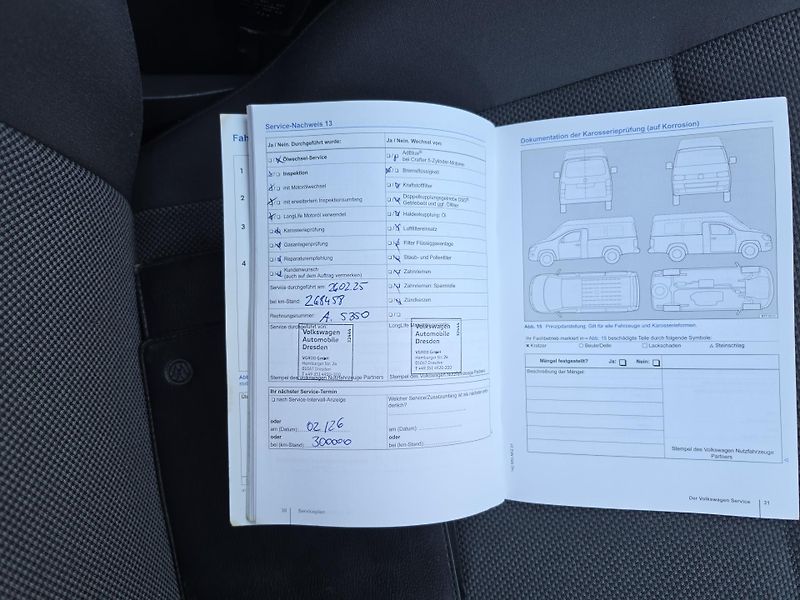 Fah
1
2
3
4
Service-Nachweis 13
Ja / Nein. Durchgeführt wurde:
Ölwechsel-Service
Inspektion
mit Motorölwechsel
mit erweitertem Inspektionsumfang
LongLife Motoröl verwendet
Karosserieprüfung
Gasanlagenprüfung
Reparaturempfehlung
Kundenwunsch
(auch auf dem Auftrag vermerken)
Service durchgeführt am: 260225
bei km-Stand: 268458
Rechnungsnummer: A. 5350
Service durchgeführt von:
Volkswagen
Automobile
Dresden
VGRDD GmbH
Hamburger Str. 2a
01067 Dresden
Stempel des Volkswagen Nutzfahrzeuge Partners
Ihr nächster Service-Termin
nach Service-Intervall-Anzeige
oder
am (Datum): 02/26
oder
bei (km-Stand): 300000
30 Serviceplan
Ja / Nein. Wechsel von:
AdBlue®
bei Crafter 5-Zylinder-Motoren
Bremsflüssigkeit
Kraftstofffilter
Doppelkupplungsgetriebe DSG®
Getriebeöl und ggf. Ölfilter
Haldexkupplung: Öl
Luftfiltereinsatz
Filter Flüssiggasanlage
Staub- und Pollenfilter
Zahnriemen
Zahnriemen: Spannrolle
Zündkerzen
LongLife
Volkswagen
Automobile
Dresden
VGRDD GmbH
Hamburger Str. 2a
01067 Dresden
Stempel des Volkswagen Nutzfahrzeuge Partners
Welcher Service/Zusatzumfang ist als nächster
am (Datum):
oder
bei (km-Stand):
Dokumentation der Karosserieprüfung (auf Korrosion)
Abb. 15 Prinzipdarstellung: Gilt für alle Fahrzeuge und Karosserieformen.
Ihr Fachbetrieb markiert in Abb. 15 beschädigte Teile durch folgende Symbole:
× Kratzer ○ Beule/Delle □ Lackschaden △ Steinschlag
Mängel festgestellt? Ja: Nein:
Beschreibung der Mängel:
Stempel des Volkswagen Nutzfahrzeuge
Partners
Der Volkswagen Service 31